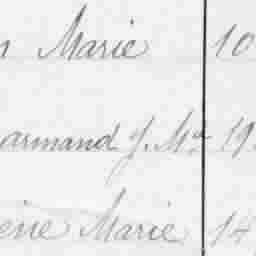 n Marie 10
armand J. Mie 19
ène Marie 14